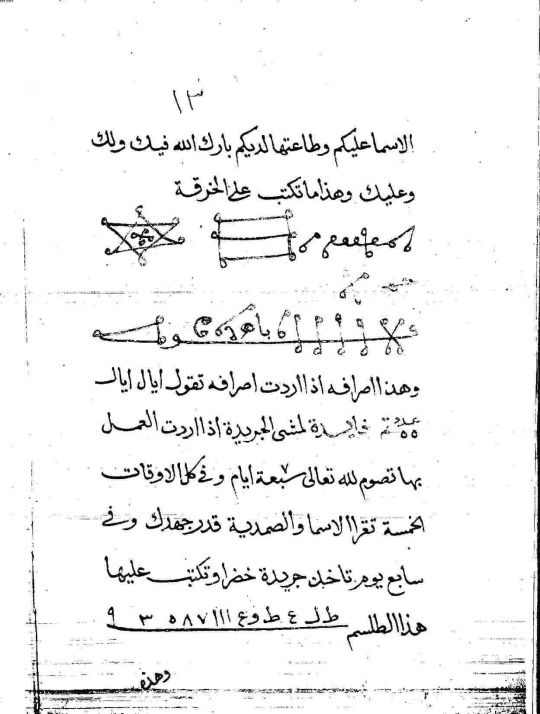 ١٣
الاسما عليكم وطاعتها لديكم بارك الله فيك ولك
وعليك وهذا ما تكتب على الخرقة
وهذا اصرافه اذا اردت اصرافه تقول ايال ايال
عدد ٥٥ تم فايدة لمشى الجريدة اذا اردت العمل
بها تصوم لله تعالى سبعة ٧ ايام وفى كل الاوقات
الخمسة تقرا الاسما والصمدية قدر جهدك وفى
سابع يوم تاخذ جريدة خضرا وتكتب عليها
هذا الطلسم ط ل ع ط و ع ااا ٧ ٨ ٥ ٣ ٩
وهذه